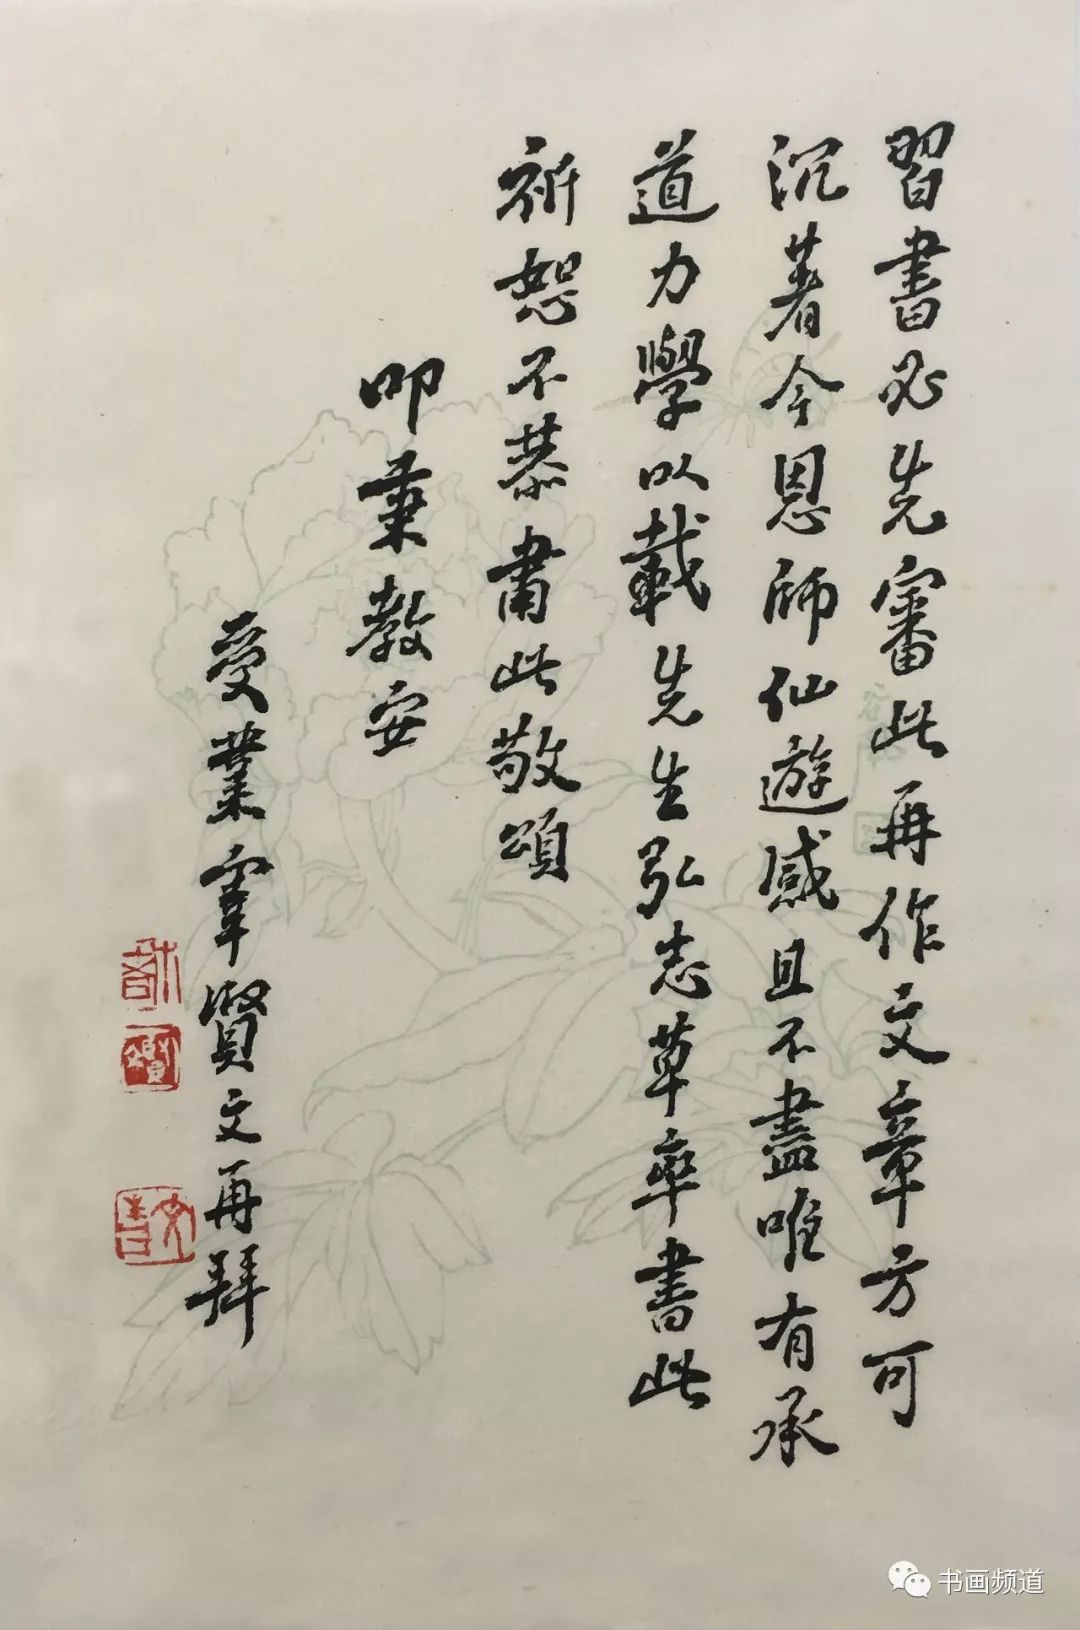 習書必先審此再作文章方可
沉著今恩師仙遊感且不盡唯有承
道力學以載先生弘志草率書此
祈恕不恭肅此敬頌
叩秉教安
受業賢文再拜
书画频道